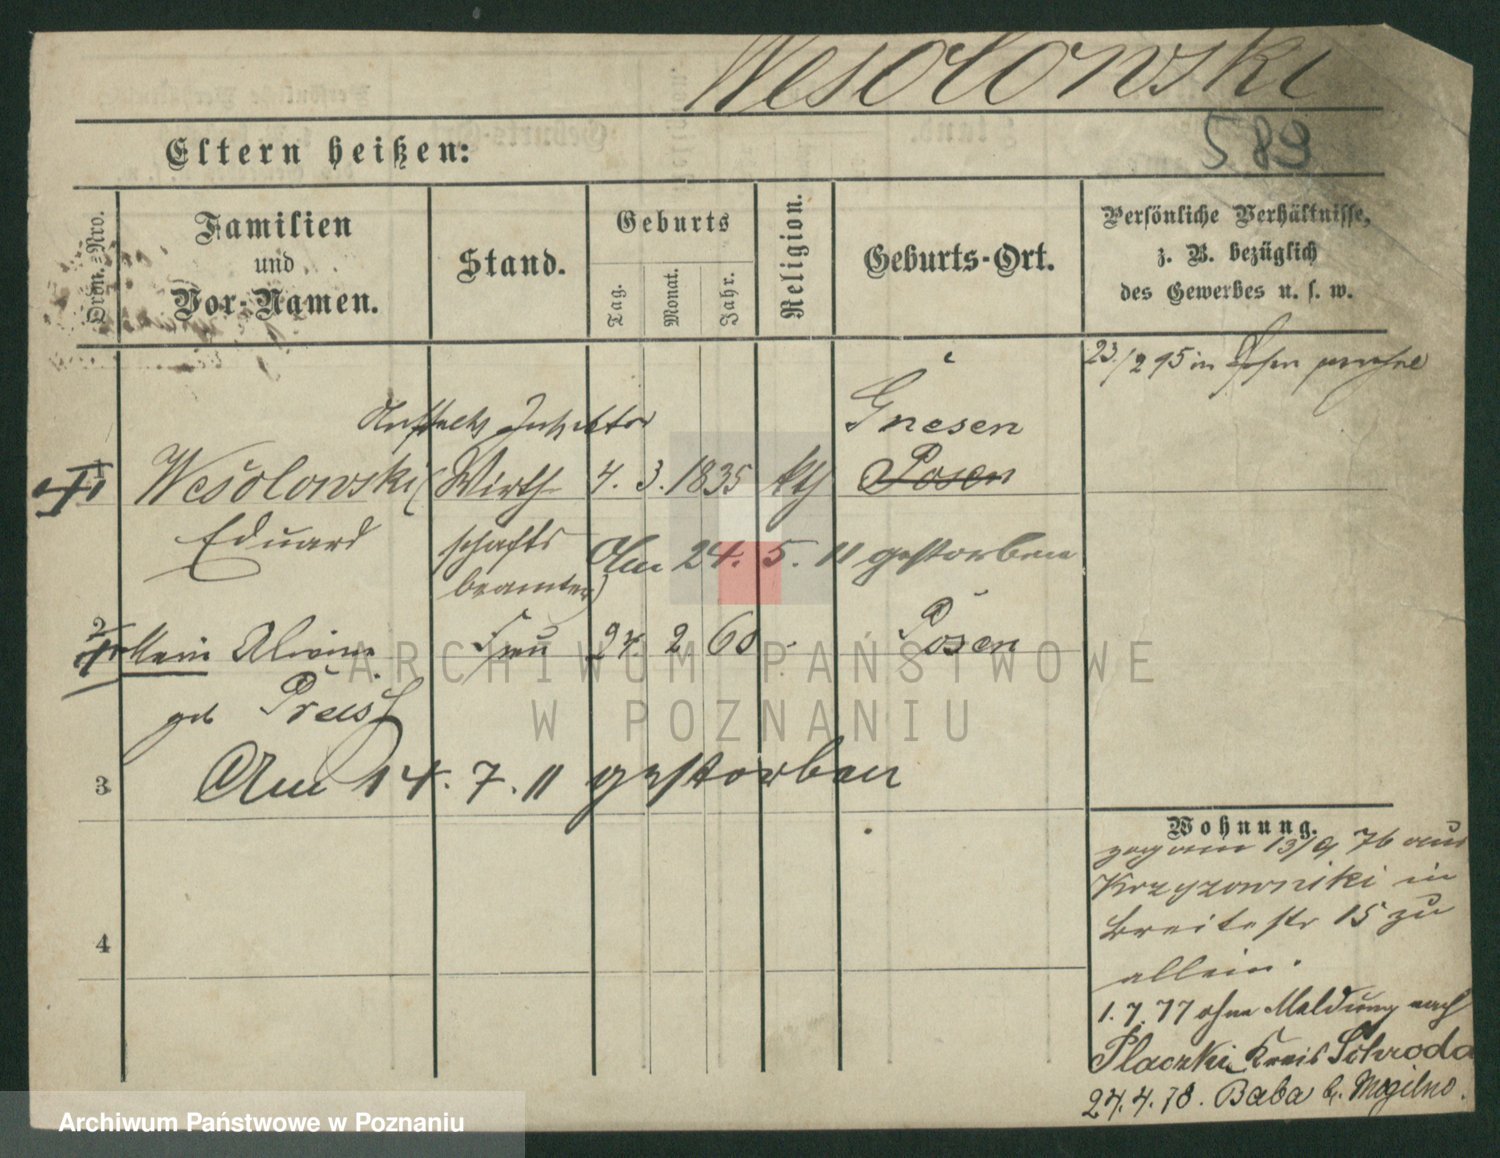 Wesolowski
589
Eltern heißen:
Ordn.-Nro.
Familien
und
Vor-Namen.
Stand.
Geburts
Tag.
Monat.
Jahr.
Religion.
Geburts-Ort.
Persönliche Verhältnisse,
z. B. bezüglich
des Gewerbes u. s. w.
23./2 95 in
Gnesen
1 Wesolowski (Wirth 4. 3. 1835 kth Posen
Eduard schafts
beamter)
Am 24. 5. 11 gestorben
2 Frau 24. 2. 60 Posen
geb
Am 14. 7. 11 gestorben
3
4
Wohnung.
zog am 13/9 76 aus
Krzyzowniki in
Breitestr 15 zu
allein.
1. 7. 77 ohne Meldung nach
Placzki Kreis Schroda
24. 4. 78. Baba b. Mogilno.
ARCHIWUM PAŃSTWOWE
W POZNANIU
Archiwum Państwowe w Poznaniu